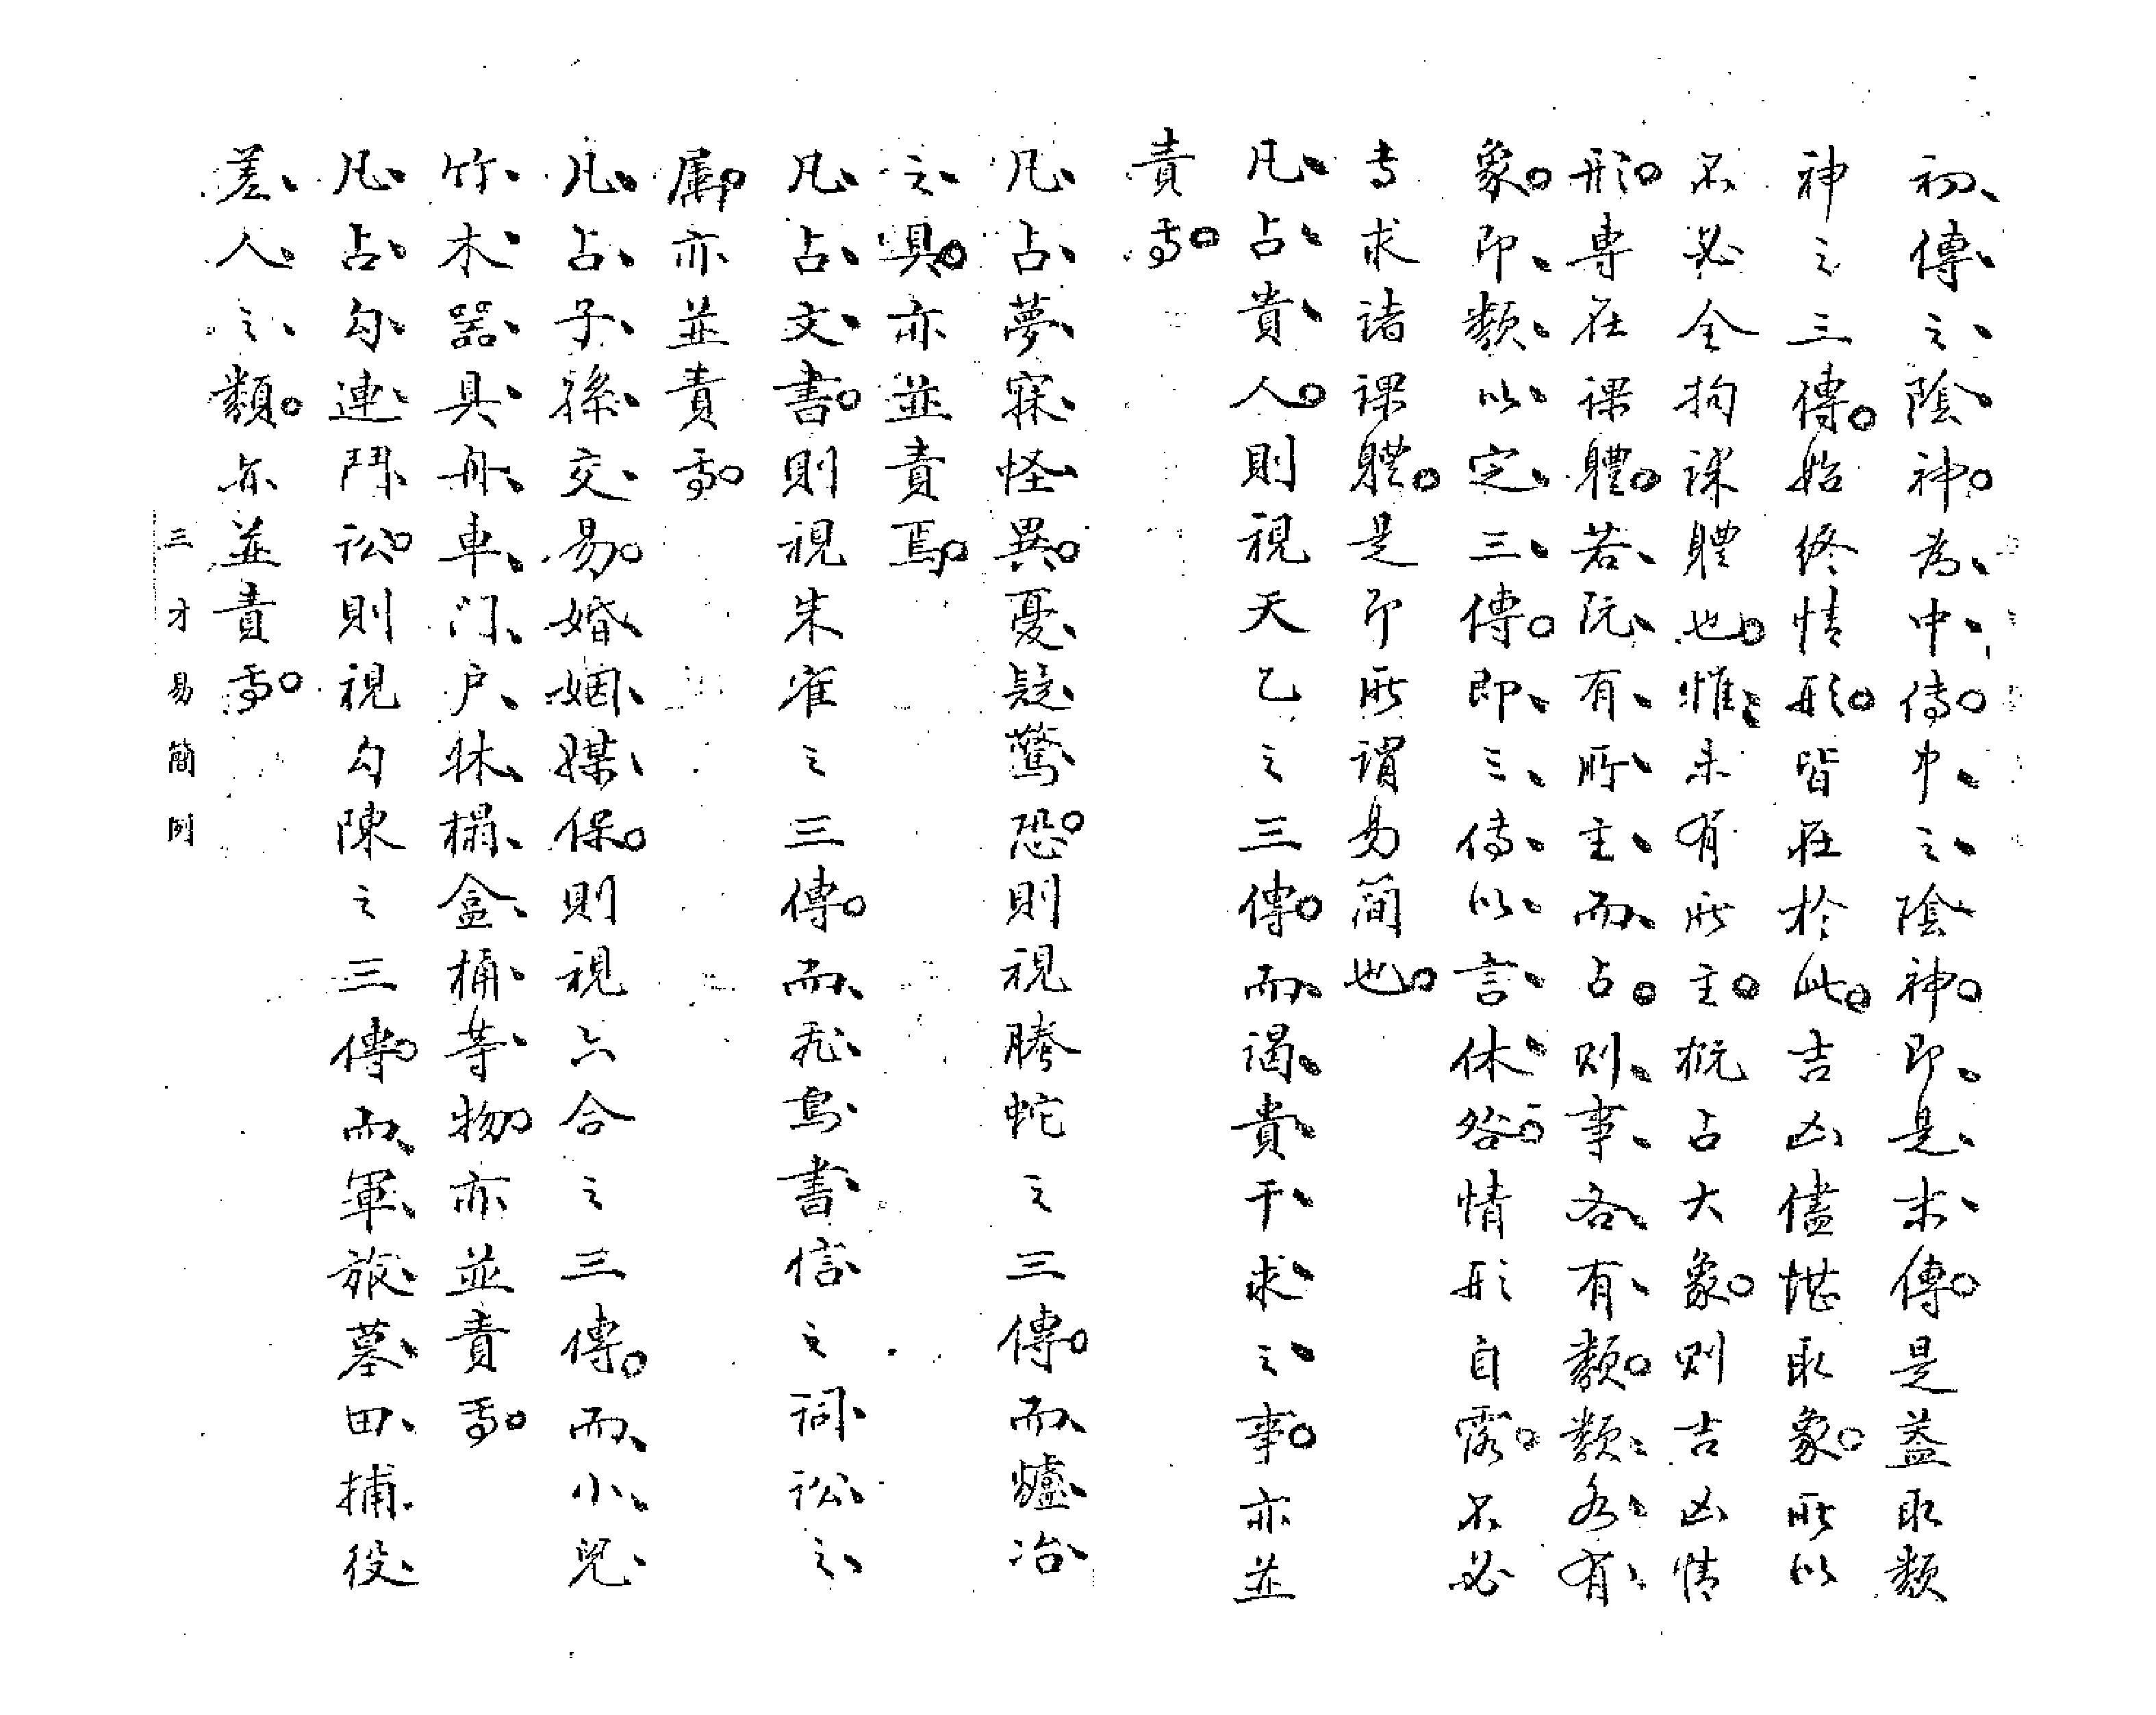 初傳之陰神為中傳中之陰神即是末傳是蓋取類
神之三傳始終情形皆在於此吉凶儘堪取象所以
不必全拘課體也惟未有所主概占大象則吉凶情
形專在課體若既有所主而占則事各有類類各有
象即類以定三傳即三傳以言休咎情形自露不必
专求諸課體是即所謂易簡也
凡占貴人則視天乙之三傳而謁貴干求之事亦並
責焉
凡占夢寐怪異憂疑驚恐則視騰蛇之三傳而爐冶
之具亦並責焉
凡占文書則視朱雀之三傳而飛鳥書信之詞訟之
屬亦並責焉
凡占子孫交易婚姻媒保則視六合之三傳而小兒
竹木器具舟車门户牀榻盒桶等物亦並責焉
凡占勾連鬥訟則視勾陳之三傳而軍旅墓田捕役
差人之類亦並責焉
三才易簡例